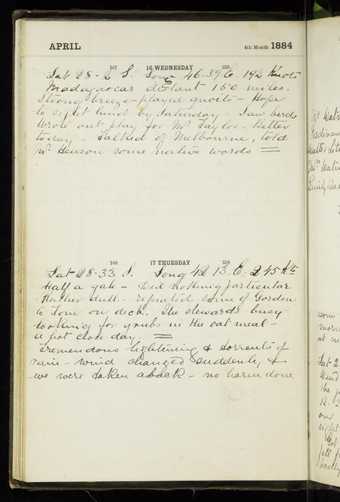 APRIL 4th Month 1884
107 16 WEDNESDAY 259
Lat 28-2 S. Long 46-39 E 192 Knots
Madagascar distant 150 miles.
Strong breeze - played quoits - Hope
to sight land by Saturday - Saw bird
Wrote out play for Mr Taylor - Hotter
today - Talked of Melbourne, told
Mr Henson some native words
108 17 THURSDAY 258
Lat 28-33 S. Long 42 13 E 245 Kts
Half a gale - Did nothing particular
Rather dull - repeated some of Gordon
to Tom on deck. The stewards busy
looking for grubs in the oat meal -
a hot close day.
Tremendous lightening & torrents of
rain - wind changed suddenly &
we were taken aback - no harm done